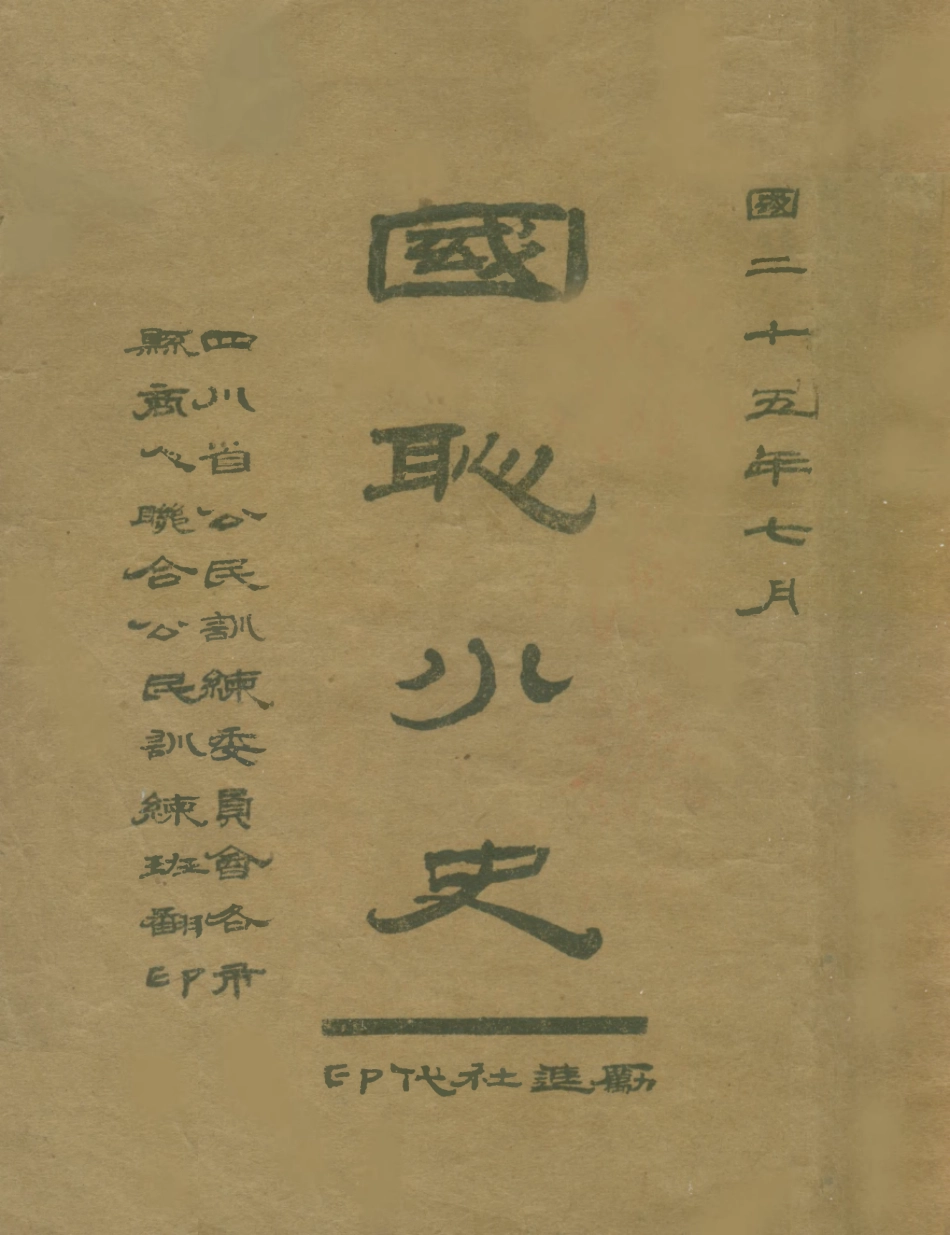 國二十五年七月
國恥小史
四川省公民訓練委員會各市
縣商人聯合公民訓練班翻印
勵進社代印